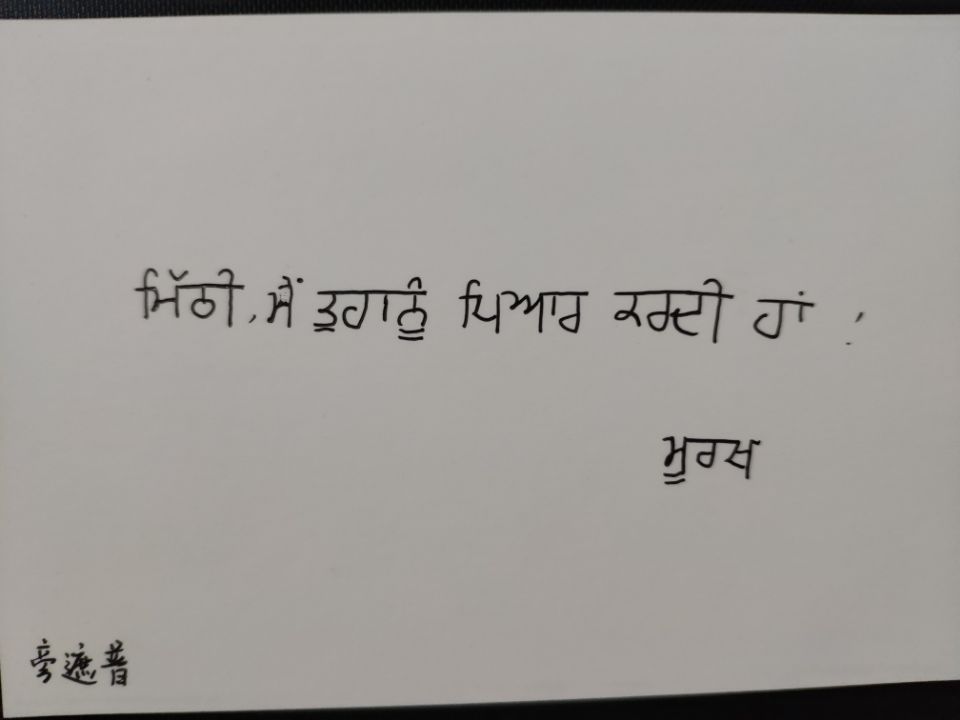 ਮਿੱਠੀ, ਮੈਂ ਤੂਹਾਨੂੰ ਪਿਆਰ ਕਰਦੀ ਹਾਂ !
ਮੂਰਖ
旁遮普